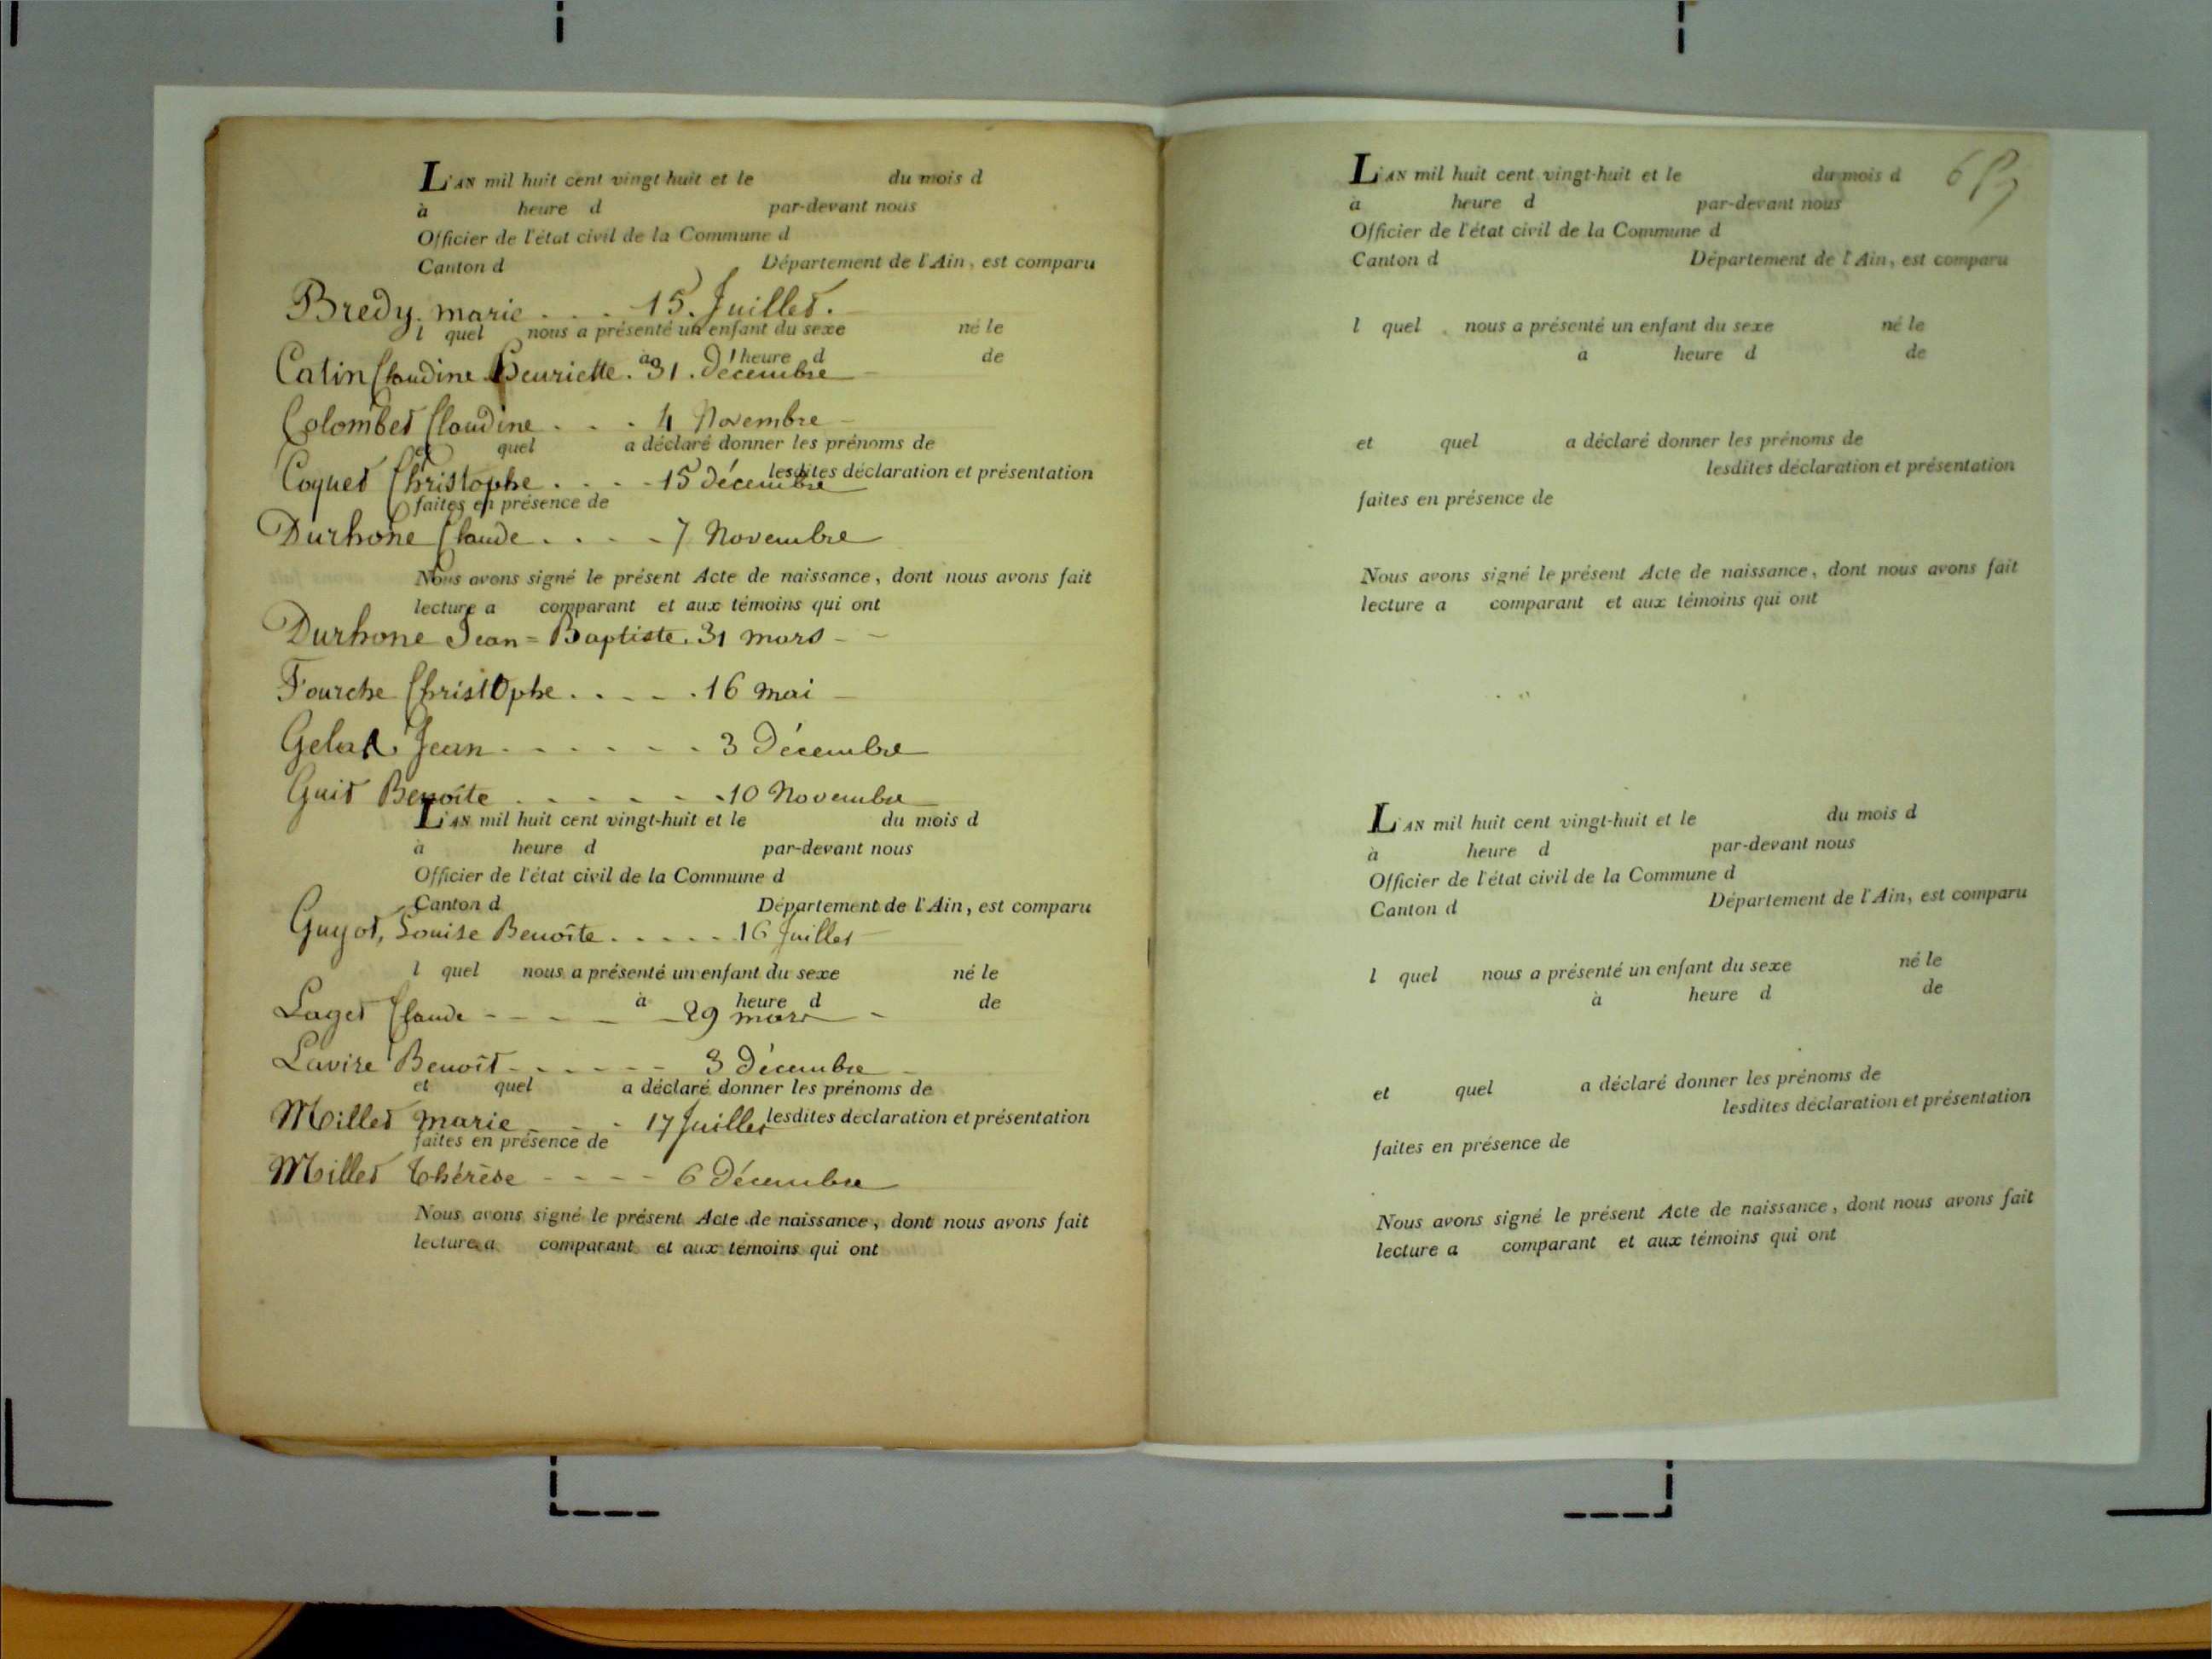 L'AN mil huit cent vingt-huit et le du mois d
à heure d par-devant nous
Officier de l'état civil de la Commune d
Canton d Département de l'Ain, est comparu
Bredy. marie . . . 15. Juillet.
l quel nous a présenté un enfant du sexe né le
à heure d de
Catin Claudine Henriette . 31 . Décembre
Colombet Claudine . . . 4 Novembre
et quel a déclaré donner les prénoms de
lesdites déclaration et présentation
Coquet Christophe . . . - 15 décembre
faites en présence de
Durhone Claude . . . - 7 Novembre
Nous avons signé le présent Acte de naissance, dont nous avons fait
lecture a comparant et aux témoins qui ont
Durhone Jean = Baptiste. 31 mars - -
Fourche Christophe . . - - . 16 mai -
Jean - - - - - - - 3 Décembre
Guit Benoîte . - - - - - . 10 Novembre
L'AN mil huit cent vingt-huit et le du mois d
à heure d par-devant nous
Officier de l'état civil de la Commune d
Canton d Département de l'Ain, est comparu
Guyot, Louise Benoîte . . . . - - 16 Juillet -
l quel nous a présenté un enfant du sexe né le
à heure d de
Laget Claude - - - - - 29 mars -
Lavire Benoît - - - - - - 3 Décembre -
et quel a déclaré donner les prénoms de
Millet marie - - - 17 Juillet
lesdites déclaration et présentation
faites en présence de
Millet thérèse - - - - 6 Décembre
Nous avons signé le présent Acte de naissance, dont nous avons fait
lecture a comparant et aux témoins qui ont
L'AN mil huit cent vingt-huit et le du mois d
à heure d par-devant nous
Officier de l'état civil de la Commune d
Canton d Département de l'Ain, est comparu
l quel nous a présenté un enfant du sexe né le
à heure d de
et quel a déclaré donner les prénoms de
lesdites déclaration et présentation
faites en présence de
Nous avons signé le présent Acte de naissance, dont nous avons fait
lecture a comparant et aux témoins qui ont
L'AN mil huit cent vingt-huit et le du mois d
à heure d par-devant nous
Officier de l'état civil de la Commune d
Canton d Département de l'Ain, est comparu
l quel nous a présenté un enfant du sexe né le
à heure d de
et quel a déclaré donner les prénoms de
lesdites déclaration et présentation
faites en présence de
Nous avons signé le présent Acte de naissance, dont nous avons fait
lecture a comparant et aux témoins qui ont